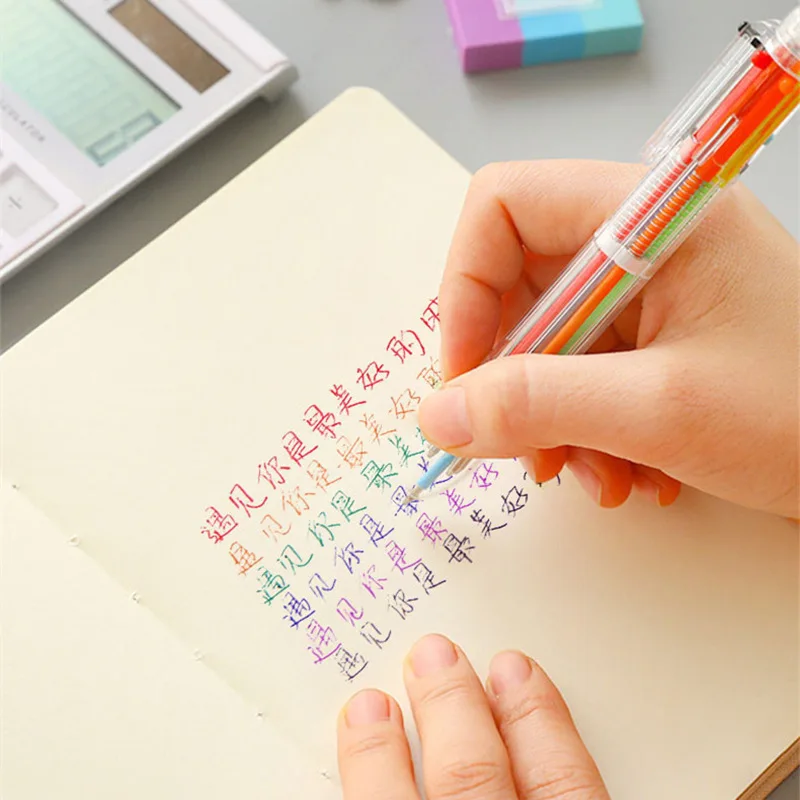 遇见你是最美好的时
遇见你是最美好的
遇见你是最美
遇见你是最
遇见你是最美好
遇见你是最美好的